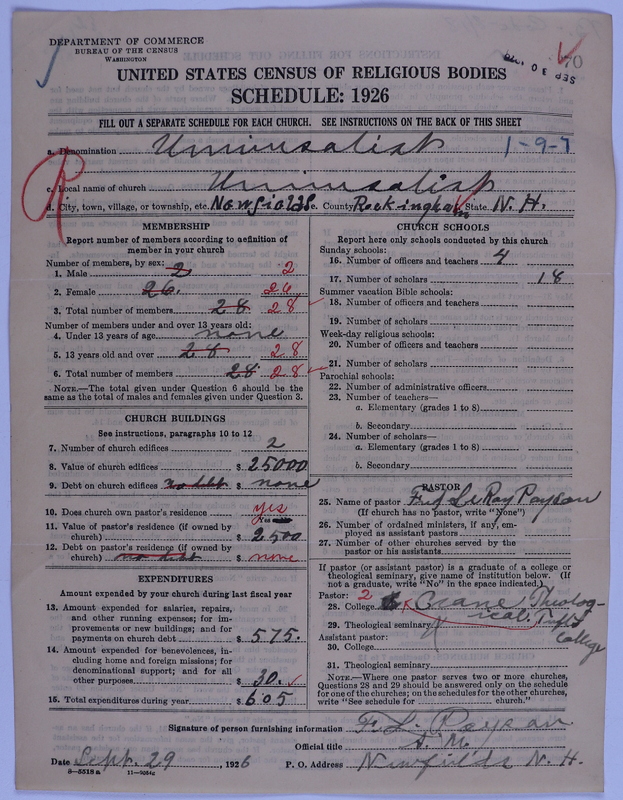 DEPARTMENT OF COMMERCE
BUREAU OF THE CENSUS
WASHINGTON
SEP 30 1926
70
UNITED STATES CENSUS OF RELIGIOUS BODIES
SCHEDULE: 1926
FILL OUT A SEPARATE SCHEDULE FOR EACH CHURCH. SEE INSTRUCTIONS ON THE BACK OF THIS SHEET
a. Denomination Universalist 1-9-7
R
c. Local name of church Universalist
d. City, town, village, or township, etc. Newfields e. County Rockingham State N. H.
MEMBERSHIP
Report number of members according to definition of
member in your church
Number of members, by sex:
1. Male 2 2
2. Female 26. 26
3. Total number of members 28 28
Number of members under and over 13 years old:
4. Under 13 years of age none
5. 13 years old and over 28 28
6. Total number of members 28 28
NOTE.—The total given under Question 6 should be the
same as the total of males and females given under Question 3.
CHURCH BUILDINGS
See instructions, paragraphs 10 to 12
7. Number of church edifices 2
8. Value of church edifices $ 25000
9. Debt on church edifices no debt $ none
10. Does church own pastor's residence yes
11. Value of pastor's residence (if owned by
church) $ 2500
12. Debt on pastor's residence (if owned by
church) no debt $ none
EXPENDITURES
Amount expended by your church during last fiscal year
13. Amount expended for salaries, repairs,
and other running expenses; for im-
provements or new buildings; and for
payments on church debt $ 575.
14. Amount expended for benevolences, in-
cluding home and foreign missions; for
denominational support; and for all
other purposes $ 30.
15. Total expenditures during year $ 605
CHURCH SCHOOLS
Report here only schools conducted by this church
Sunday schools:
16. Number of officers and teachers 4
17. Number of scholars 18
Summer vacation Bible schools:
18. Number of officers and teachers
19. Number of scholars
Week-day religious schools:
20. Number of officers and teachers
21. Number of scholars
Parochial schools:
22. Number of administrative officers
23. Number of teachers—
a. Elementary (grades 1 to 8)
b. Secondary
24. Number of scholars—
a. Elementary (grades 1 to 8)
b. Secondary
PASTOR
25. Name of pastor LeRoy Payson
(If church has no pastor, write "None")
26. Number of ordained ministers, if any, em-
ployed as assistant pastors
27. Number of other churches served by the
pastor or his assistants
If pastor (or assistant pastor) is a graduate of a college or
theological seminary, give name of institution below. (If
not a graduate, write "No" in the space indicated.)
Pastor: 2
28. College Crane Theolog-
29. Theological seminary ical. Tufts
College
Assistant pastor:
30. College
31. Theological seminary
NOTE.—Where one pastor serves two or more churches,
Questions 28 and 29 should be answered only on the schedule
for one of the churches; on the schedules for the other churches,
write "See schedule for church."
Signature of person furnishing information F. L. Payson
Official title
Date Sept. 29, 1926 P. O. Address Newfields N. H.
8-5518 a